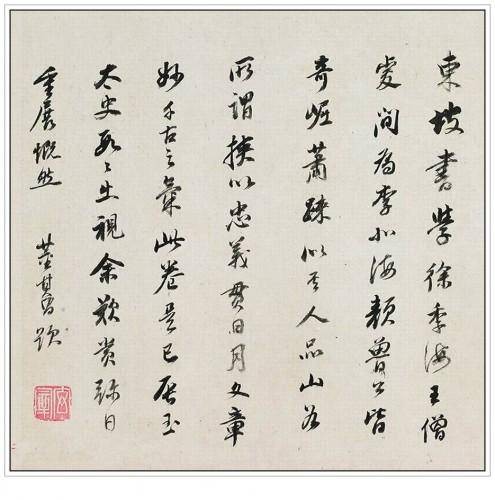 東坡書學徐季海王僧
虔間為李北海顏魯公皆
奇崛蕭疎似其人品山谷
所謂挾以忠義貫日月文章
妙千古之氣此卷是已辰玉
太史出視余歎賞弥日
重展慨然 董其昌題